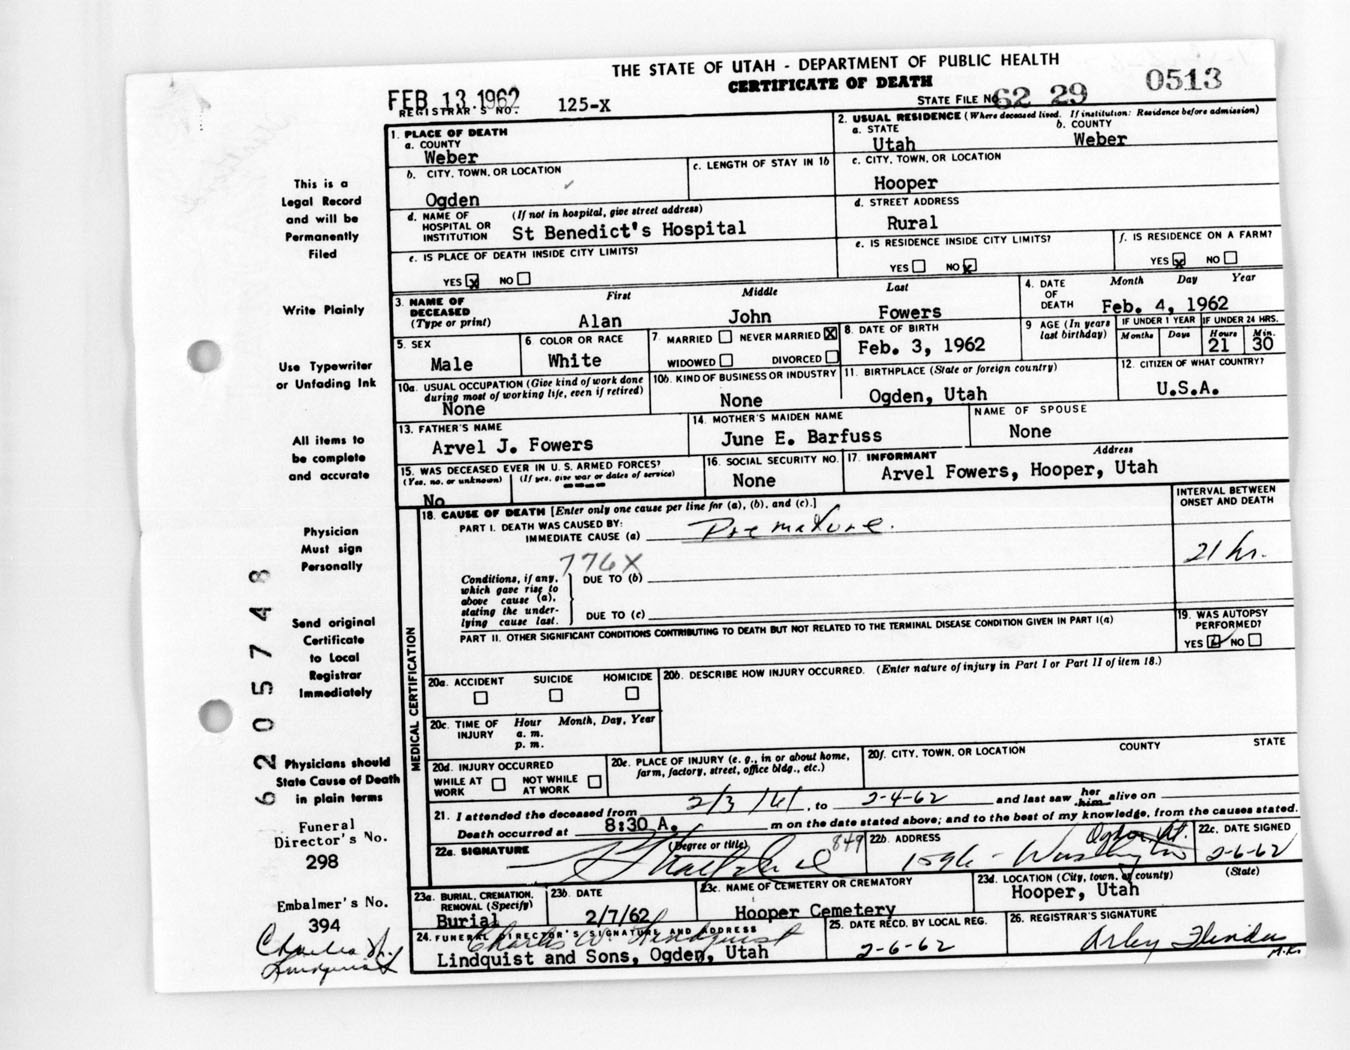 THE STATE OF UTAH - DEPARTMENT OF PUBLIC HEALTH
CERTIFICATE OF DEATH
FEB 13.1962
REGISTRAR'S NO. 125-X
STATE FILE NO. 62 29 0513
1. PLACE OF DEATH
a. COUNTY
Weber
b. CITY, TOWN, OR LOCATION
Ogden
c. LENGTH OF STAY IN 1b
d. NAME OF HOSPITAL OR INSTITUTION (If not in hospital, give street address)
St Benedict's Hospital
e. IS PLACE OF DEATH INSIDE CITY LIMITS?
YES NO
2. USUAL RESIDENCE (Where deceased lived. If institution: Residence before admission)
a. STATE
Utah
b. COUNTY
Weber
c. CITY, TOWN, OR LOCATION
Hooper
d. STREET ADDRESS
Rural
e. IS RESIDENCE INSIDE CITY LIMITS?
YES NO
f. IS RESIDENCE ON A FARM?
YES NO
3. NAME OF DECEASED (Type or print)
First Middle Last
Alan John Fowers
4. DATE OF DEATH Month Day Year
Feb. 4, 1962
5. SEX
Male
6. COLOR OR RACE
White
7. MARRIED NEVER MARRIED
WIDOWED DIVORCED
8. DATE OF BIRTH
Feb. 3, 1962
9 AGE (In years last birthday) IF UNDER 1 YEAR IF UNDER 24 HRS.
Months Days Hours Min.
21 30
10a. USUAL OCCUPATION (Give kind of work done during most of working life, even if retired)
None
10b. KIND OF BUSINESS OR INDUSTRY
None
11. BIRTHPLACE (State or foreign country)
Ogden, Utah
12. CITIZEN OF WHAT COUNTRY?
U.S.A.
13. FATHER'S NAME
Arvel J. Fowers
14. MOTHER'S MAIDEN NAME
June E. Barfuss
NAME OF SPOUSE
None
15. WAS DECEASED EVER IN U.S. ARMED FORCES?
(Yes, no, or unknown) (If yes, give war or dates of service)
No
16. SOCIAL SECURITY NO.
None
17. INFORMANT Address
Arvel Fowers, Hooper, Utah
MEDICAL CERTIFICATION
18. CAUSE OF DEATH [Enter only one cause per line for (a), (b), and (c).]
PART I. DEATH WAS CAUSED BY:
IMMEDIATE CAUSE (a) Premature.
INTERVAL BETWEEN ONSET AND DEATH
21 hr.
776X
Conditions, if any, which gave rise to above cause (a), stating the underlying cause last.
DUE TO (b)
DUE TO (c)
PART II. OTHER SIGNIFICANT CONDITIONS CONTRIBUTING TO DEATH BUT NOT RELATED TO THE TERMINAL DISEASE CONDITION GIVEN IN PART I(a)
19. WAS AUTOPSY PERFORMED?
YES NO
20a. ACCIDENT SUICIDE HOMICIDE
20b. DESCRIBE HOW INJURY OCCURRED. (Enter nature of injury in Part I or Part II of item 18.)
20c. TIME OF INJURY Hour Month, Day, Year
a. m.
p. m.
20d. INJURY OCCURRED
WHILE AT WORK NOT WHILE AT WORK
20e. PLACE OF INJURY (e. g., in or about home, farm, factory, street, office bldg., etc.)
20f. CITY, TOWN, OR LOCATION COUNTY STATE
21. I attended the deceased from 2/3/61, to 2-4-62 and last saw her him alive on
Death occurred at 8:30 A. m on the date stated above; and to the best of my knowledge, from the causes stated.
22a. SIGNATURE (Degree or title) 849
22b. ADDRESS
Ogden Ut.
Washington
22c. DATE SIGNED
2-6-62
23a. BURIAL, CREMATION, REMOVAL (Specify)
Burial
23b. DATE
2/7/62
23c. NAME OF CEMETERY OR CREMATORY
Hooper Cemetery
23d. LOCATION (City, town, or county) (State)
Hooper, Utah
24. FUNERAL DIRECTOR'S SIGNATURE AND ADDRESS
Charles W. Lindquist
Lindquist and Sons, Ogden, Utah
25. DATE RECD. BY LOCAL REG.
2-6-62
26. REGISTRAR'S SIGNATURE
Arley Flinders
M.K.
This is a
Legal Record
and will be
Permanently
Filed
Write Plainly
Use Typewriter
or Unfading Ink
All items to
be complete
and accurate
Physician
Must sign
Personally
Send original
Certificate
to Local
Registrar
Immediately
Physicians should
State Cause of Death
in plain terms
Funeral
Director's No.
298
Embalmer's No.
394
Charles W.
Lindquist
6205748